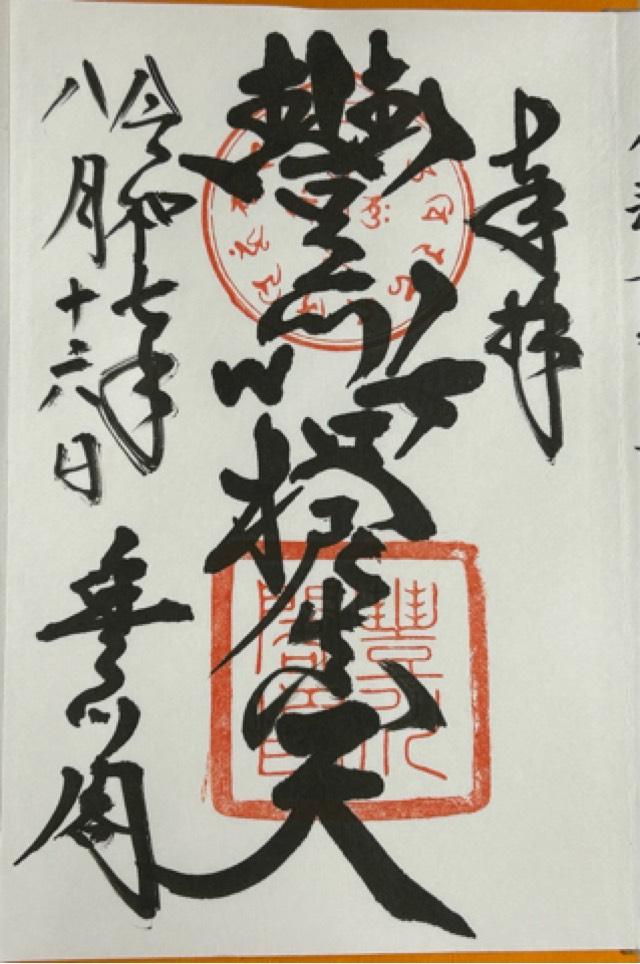 奉拝
豐川吒枳尼真天
令和七年
八月十六日
豊川閣